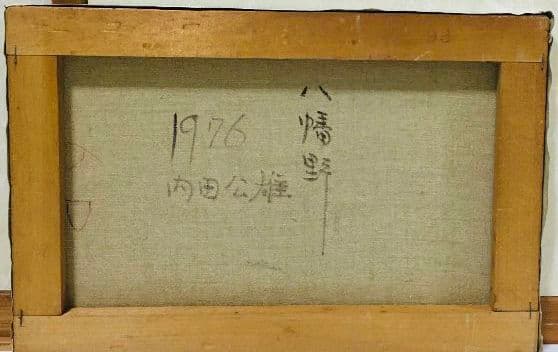 八幡野
1976
内田公雄